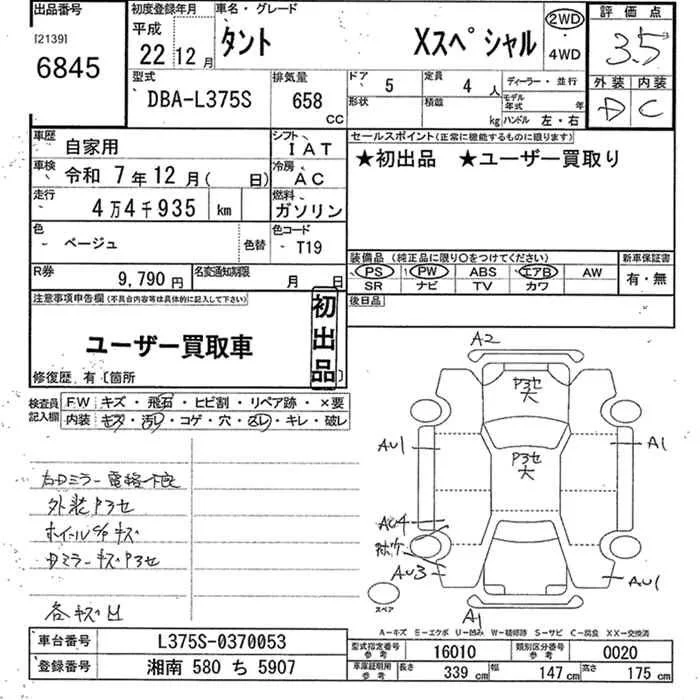 出品番号
[2139]
6845
初度登録年月
平成
22 12 月
車名・グレード
タント Xスペシャル
2WD
・
4WD
評価点
3.5
外装 内装
D C
型式
DBA-L375S
排気量
658
CC
ドア 5
定員 4 人
ディーラー・並行
形状
積載 kg
モデル年式 年
ハンドル 左・右
車歴 自家用
シフト IAT
車検 令和 7年12月( 日)
冷房 AC
走行 4万4千935 km
燃料 ガソリン
色 ベージュ 色替
色コード T19
R券 9,790 円
名変通知期限 月 日
セールスポイント(正常に機能するものに限ります)
★初出品 ★ユーザー買取り
装備品 (純正品に限り○をつけてください)
PS PW ABS エアB AW
SR ナビ TV カワ
新車保証書
有・無
後日品
注意事項申告欄(不具合内容等は具体的に記入して下さい)
ユーザー買取車
初出品
修復歴 有〔箇所
検査員記入欄
FW キズ・飛石・ヒビ割・リペア跡・×要
内装 キズ・汚レ・コゲ・穴・・キレ・破レ
右Dミラー電格不良
外装アセ
ホイールキズ
Dミラーキズアセ
各キズ凹
A2
アセ
大
AU1
A1
アセ
大
AU4
AU3
AU1
A1
スペア
A-キズ E-エクボ U-凹み W-補修跡 S-サビ C-腐食 XX-交換済
車台番号 L375S-0370053
登録番号 湘南 580 ち 5907
型式指定番号
参考
16010
類別区分番号
参考
0020
車庫証明用
参考
長さ 339 cm 幅 147 cm 高さ 175 cm